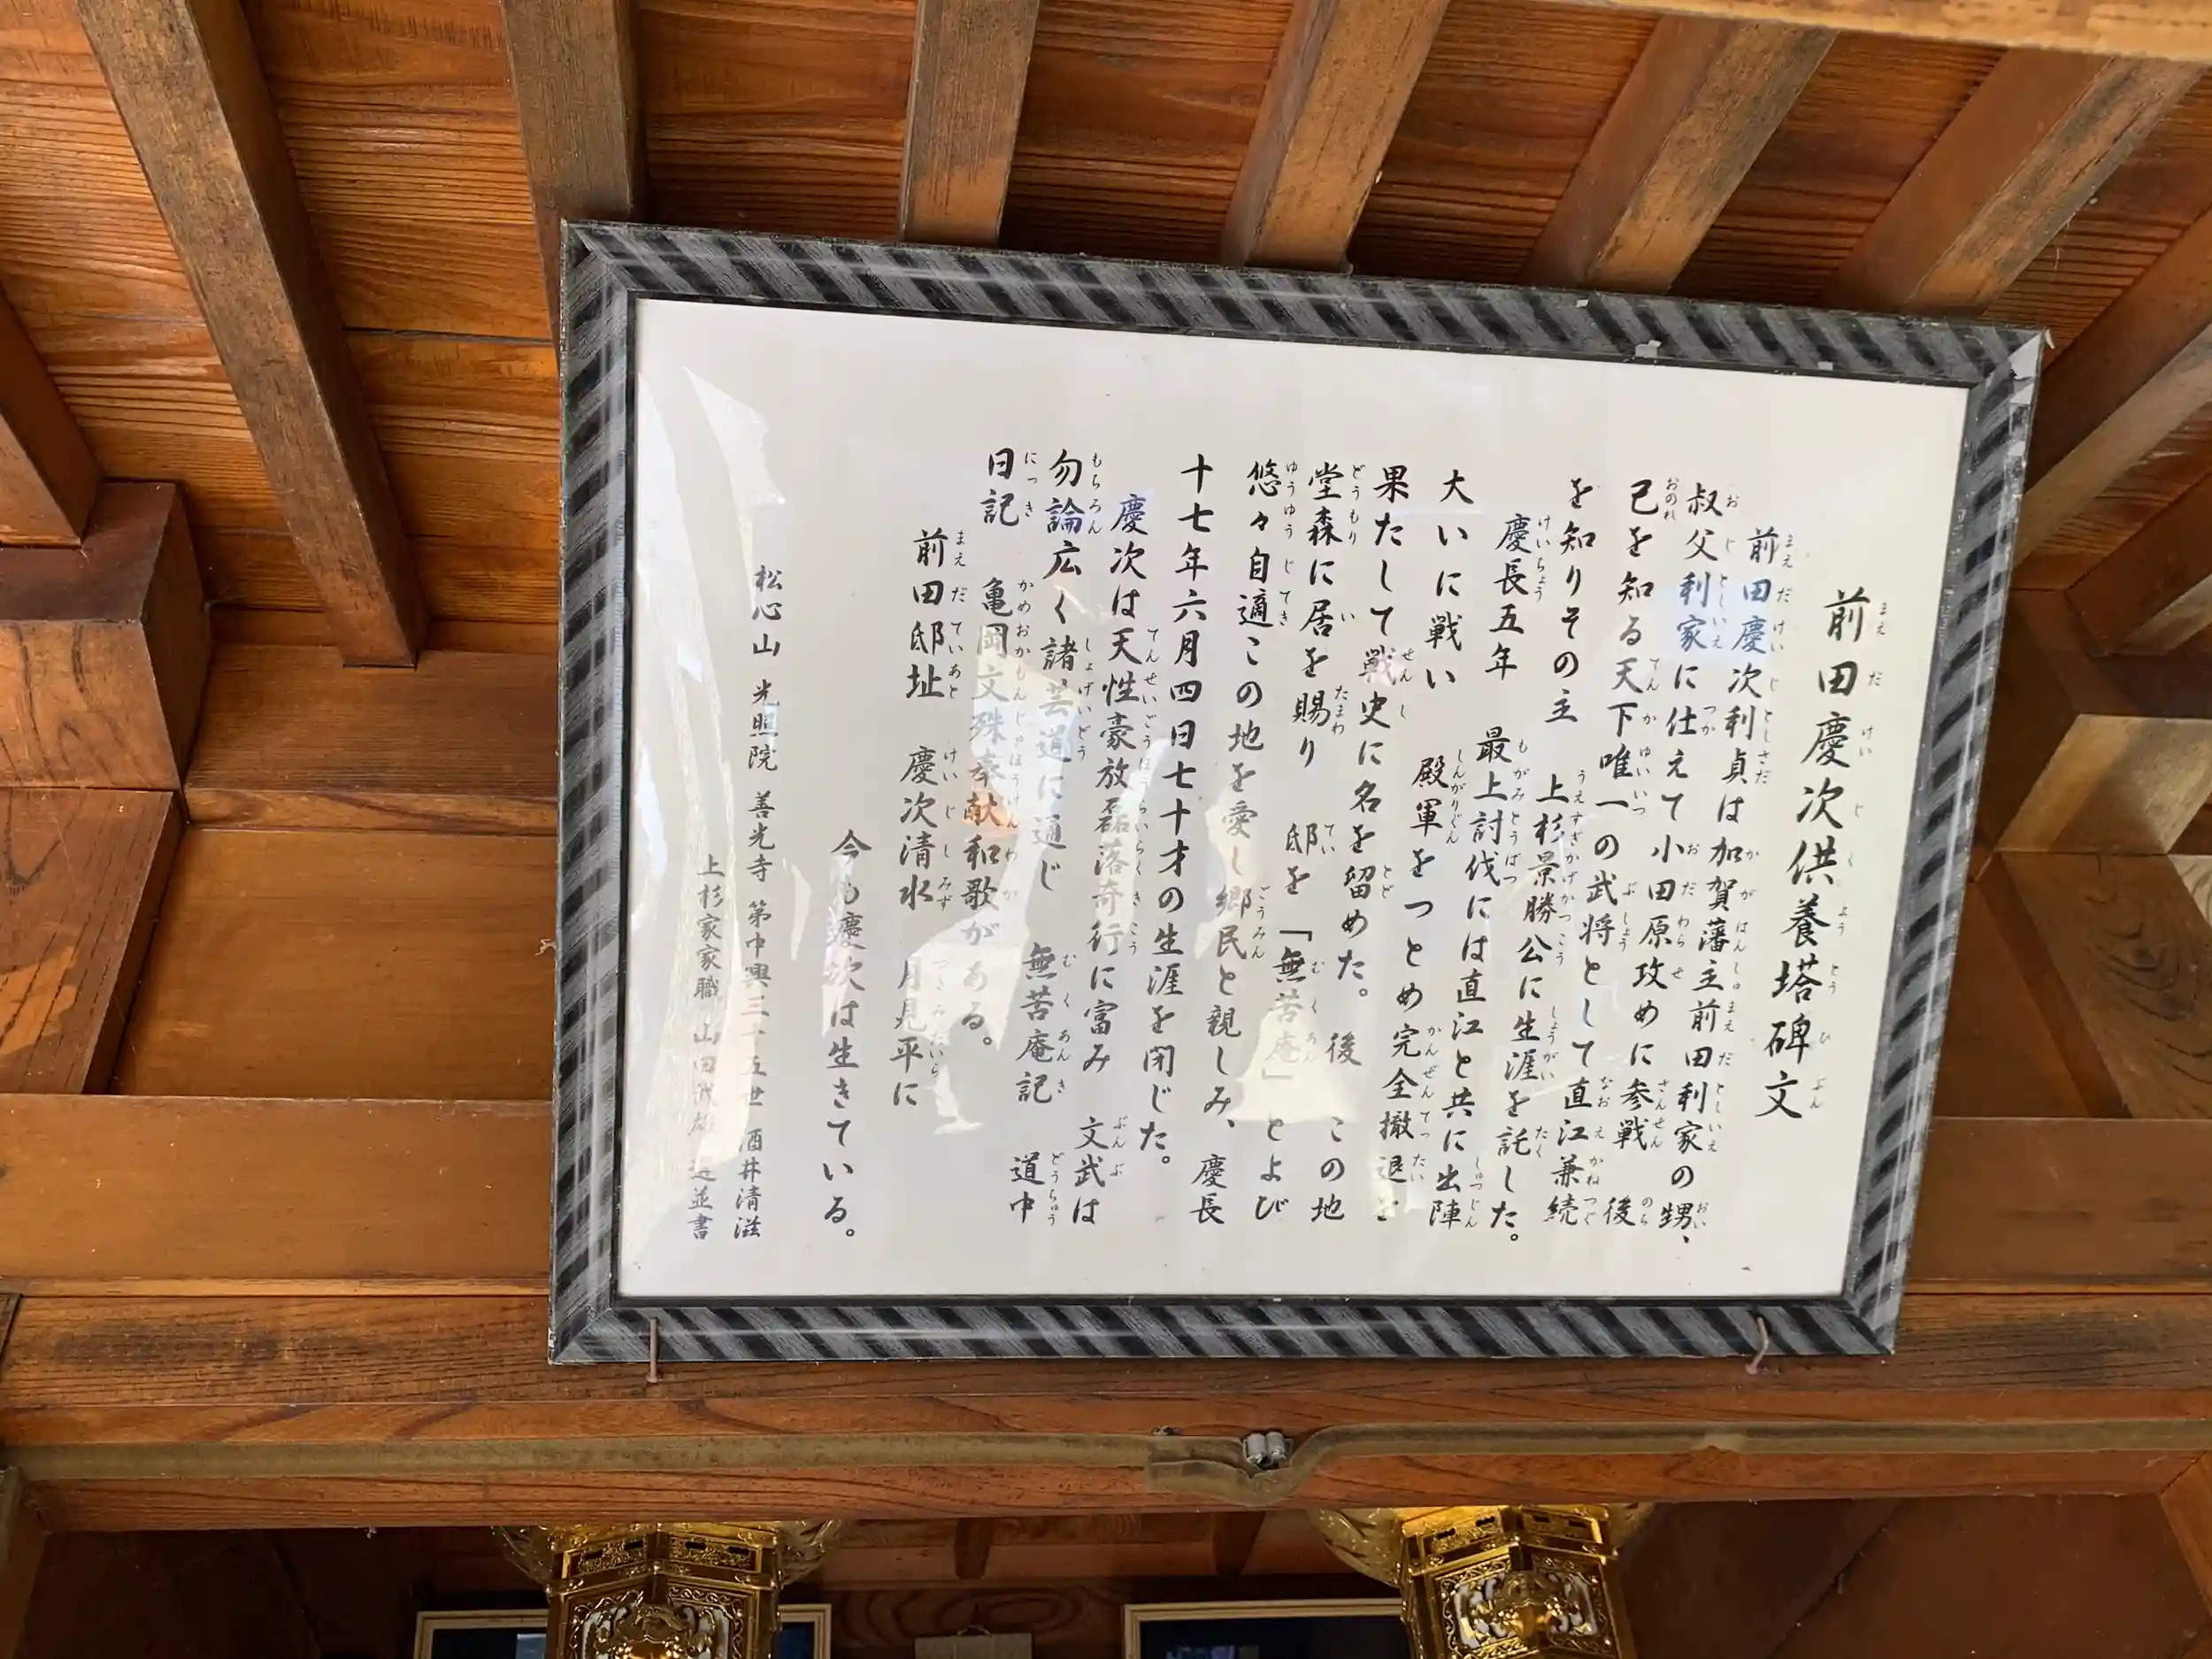 前田慶次供養塔碑文
前田慶次利貞は加賀藩主前田利家の甥、
叔父利家に仕えて小田原攻めに参戦 後
己を知る天下唯一の武将として直江兼続
を知りその主 上杉景勝公に生涯を託した。
慶長五年 最上討伐には直江と共に出陣
大いに戦い 殿軍をつとめ完全撤退を
果たして戦史に名を留めた。 後 この地
堂森に居を賜り 邸を「無苦庵」とよび
悠々自適この地を愛し郷民と親しみ、慶長
十七年六月四日七十才の生涯を閉じた。
慶次は天性豪放磊落奇行に富み 文武は
勿論広く諸芸道に通じ 無苦庵記 道中
日記 亀岡文殊奉献和歌がある。
前田邸址 慶次清水 月見平に
今も慶次は生きている。
松心山 光照院 善光寺 第中興三十五世 酒井清滋
上杉家家職 山田武雄 選並書